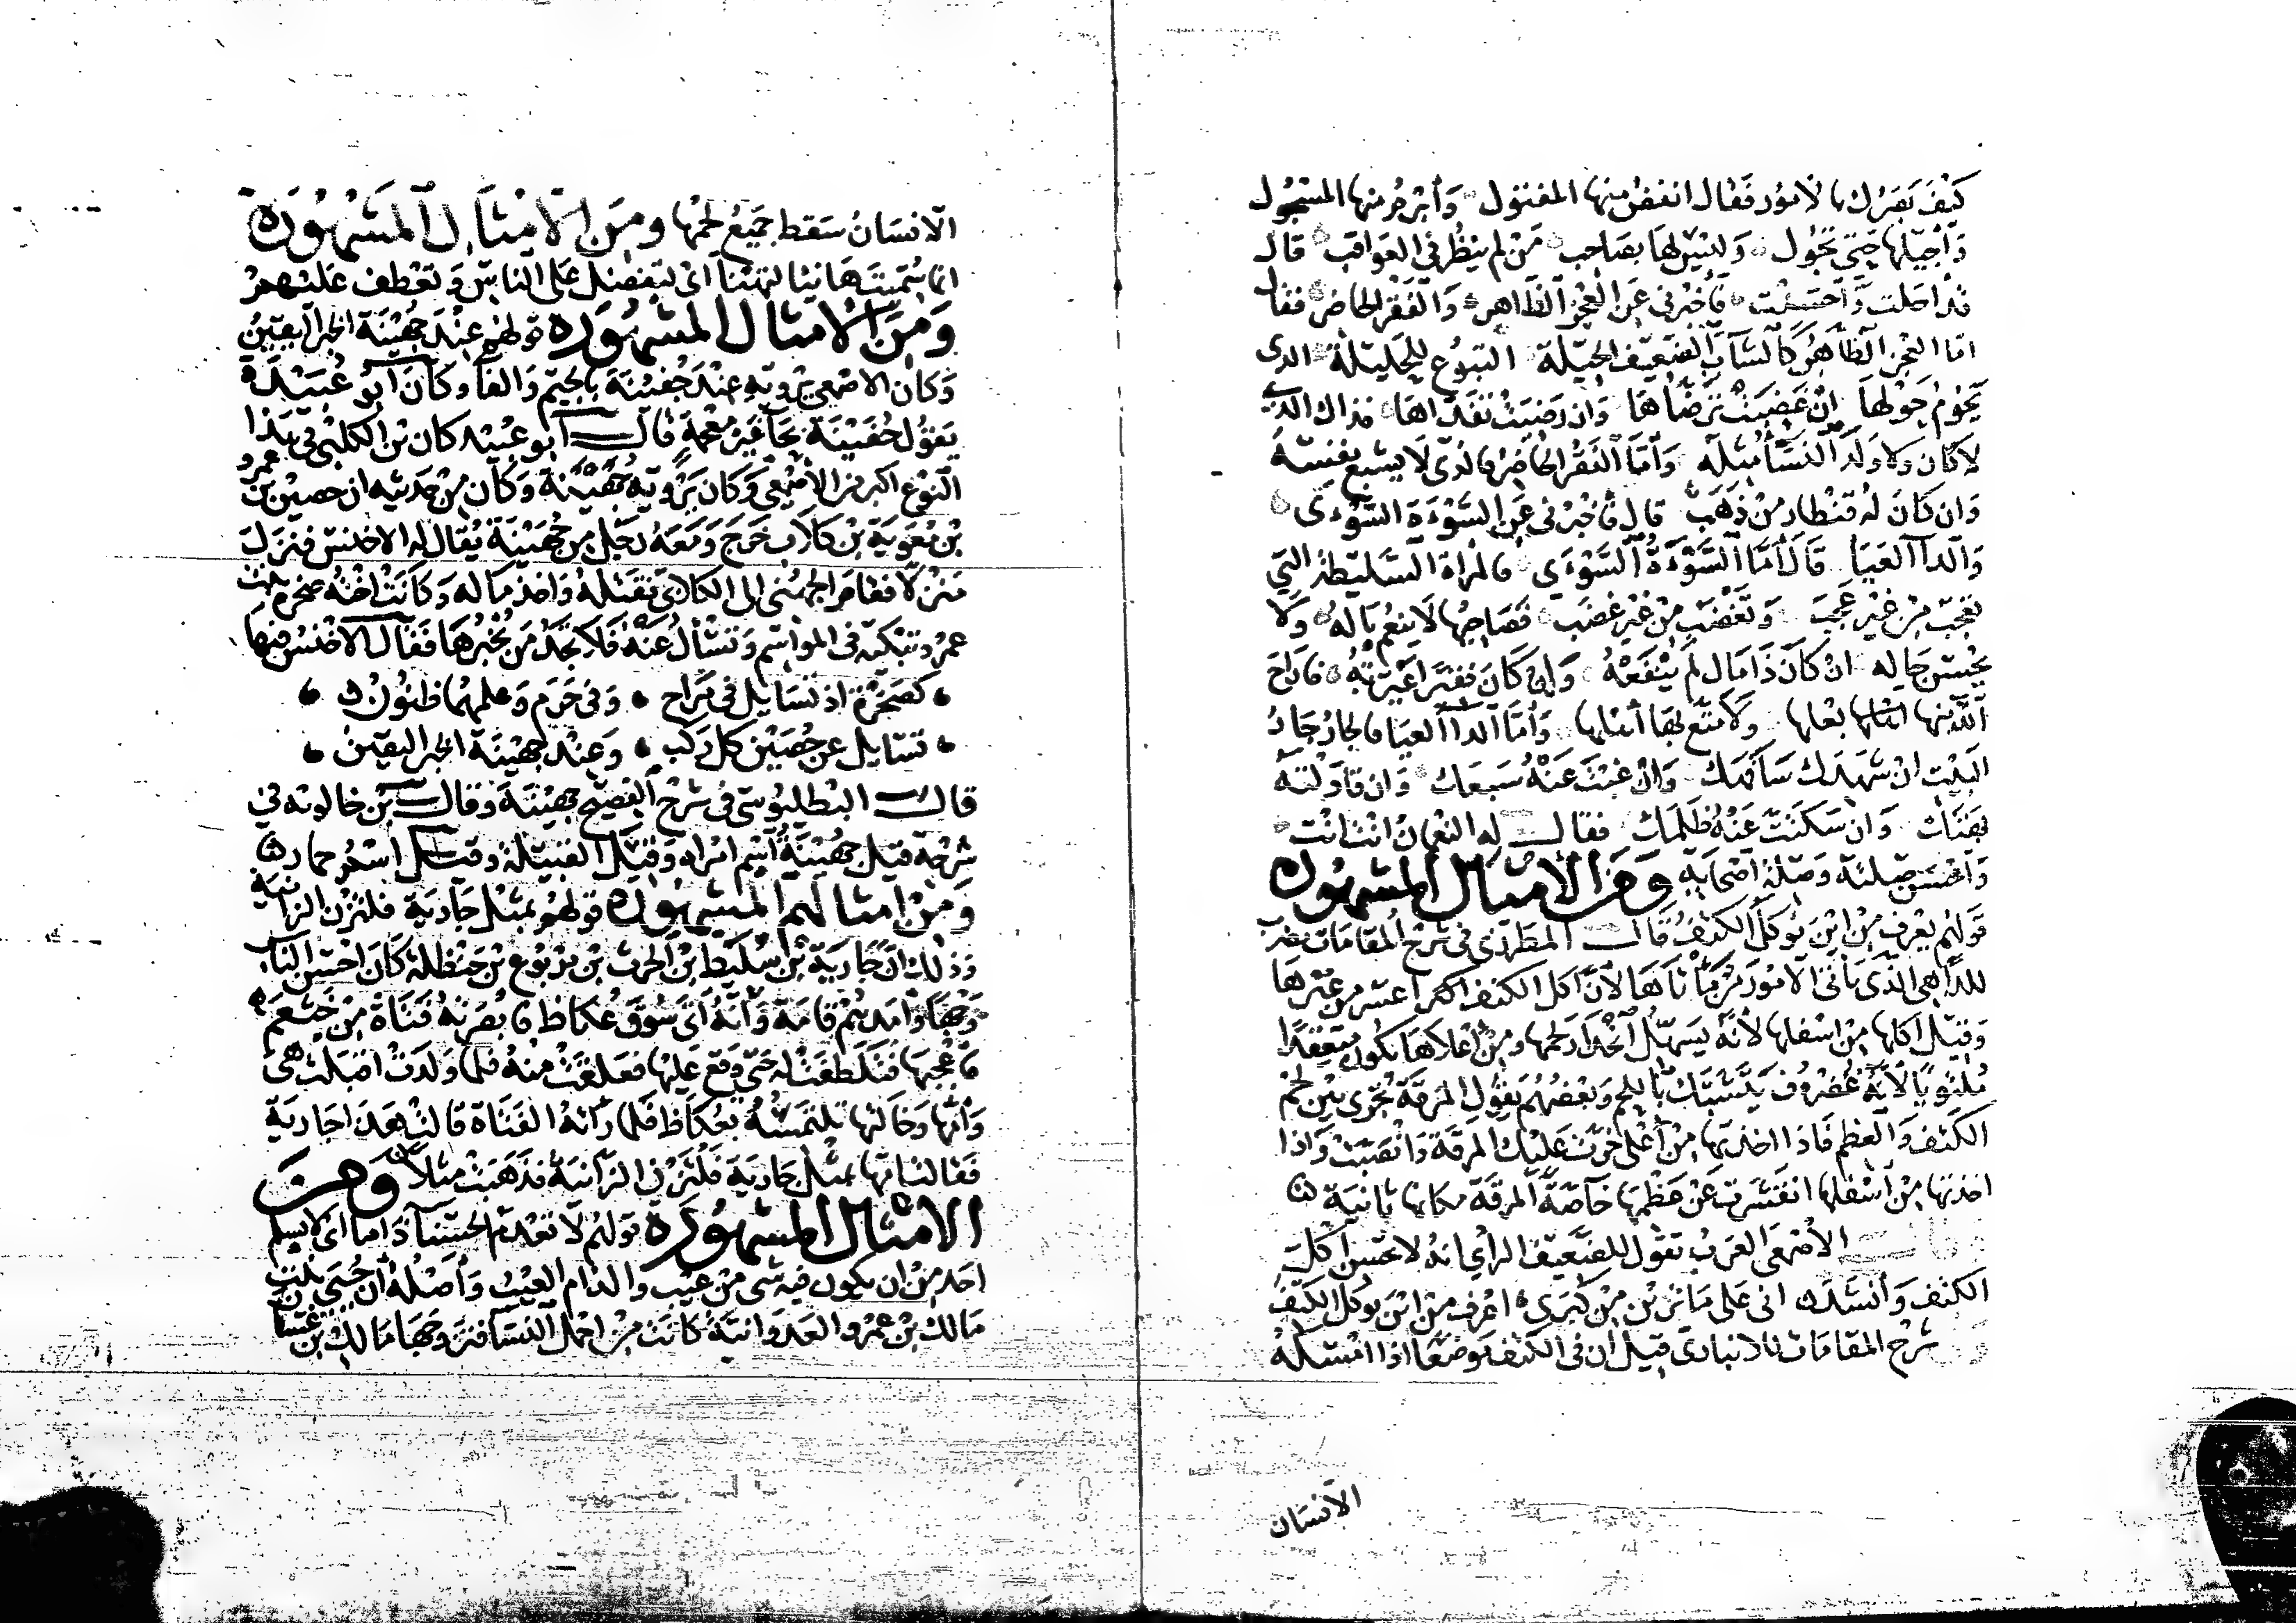 كَيْفَ بَصَرُك بالأمُور فقَال انفض منها المفتول وَأبرمُ منها المسحُول
وَأجيلها حتّى تَجُول وَليْسَ لها بصَاحب مَنْ لم ينظُر في العوَاقب قال
قد اجلت وَاحسنت فأخبرنى عَن العجز الظاهر وَالفَقْر الحاضر فقال
امّا العجز الظاهر كالشاب الضعيف الحيلة التبوع للحليلة الذى
يَحُومُ حَولها ان غضبَتْ ترضاهَا وَان رضيَتْ تفداهَا فذاك الذى
لا كان وَلا وَلَد النسَاء مثله وَأمّا الفَقْر الحاضر فالذى لَا يشبع نفسهُ
وَان كانَ لهُ قنطار من ذهَب قال فأخبرنى عَن السَّوْءة السّوْءى
وَالداء العيَا قالَ أمّا السَّوْءَة السَّوْءَى فالمراة السَّليطة التى
تعجبُ من غَيْر عجب وَتغضب من غير غضب فصَاحبُها لا ينعُم بَاله وَلا
يحسن حَاله ان كانَ ذَا مَال لم ينفعهُ وَان كانَ فقيرا عيرتهُ فاراح
الله منها بعلها وَلا متّع بهَا أهلها وَأمّا الداء العيَا فالجار جَار
البيْت ان شهدك سَافهَك وَان غبْتَ عَنْهُ سَبعَك وَان قاولته
بهتَك وَان سَكتّ عَنْهُ ظلمَك فقال له النعمان انت انت
وَاحْسَن صلتهُ وَصلة اصحَابه وَمن الأمثال المشهُوره
قَولهُم يعْرف من اين تؤكل الكتفُ قال المطرزى في شرح المقامَات يضرب
للداهى الذى يأتى الأمُور من مأتاهَا لأن اكل الكتف اعسر من غيرها
وَقيل اكلها من اسفلها لأنه يَسهُل انحدار لحمها ومن اعلاهَا يكون متعقدا
مُلتويًا لأنه غُضروُف يَتشبّك باللحم وَبعضهُم يقول المرقة تجرى بين لحم
الكتف وَالعظم فاذا اخذتها من أعلى خرّت عليْك المرقة وَانصَبتْ وَاذا
اخذتها من أسفلها انقشرت عَنْ عظمها خاصّة المرقة مكانها ثابتة
قال الأصمعى العَربُ تقول للضعيف الرأى انهُ لا يحسن اكل
الكتف وَأنشد انى على مَا ترين من كبرى اعرف من أين يؤكل الكتف
شرح المقامَات للانبارى قيل ان في الكتف مَوضعا اذا امْسَكهُ
الانسَان
الانسَانُ سَقط جَميعُ لحمْها ومنَ الامْثَال المَشْهُورَة
انّما سُمّيتَ هَانيا لتهنَأ اىْ لتفضل عَلى النَاس وَتعْطف عَليْهمْ
وَمنَ الأمثال المشهُورَه قولهُم عنْدَ جُهيْنَة الخبر اليقينُ
وَكان الاصْمعى يرْويه عنْدَ جُفيْنَة بالجيم وَالفَا وكان أبُو عُبَيْدَة
يَقوُل حُفَيْنَة بحَا غَيْر مُعْجمَةٍ قال أبو عُبَيْد كان بن الكلبى في هَذا
النَوْع اكبر من الأصمْعى وَكان يَرْويه جُهَيْنَة وَكان من حَديثه ان حصيْن بن عمرو
بن مُعَويَة بن كلاب خَرَج وَمَعَهُ رَجل من جُهَيْنَة يُقال له الاخنس فنزلَ
مَنزلاً فقامَ الجهَنى الى الكلابى فقتَلهُ وَاخذ مَاله وَكانتْ اختهُ صَخرة بنت
عمرو تبْكيه في الموَاسم وَتسْألُ عَنْهُ فلا تجدُ مَن يُخبرُهَا فقال الأخنسُ فيها
كصَخرَة اذ تسَايل في مَراح وَفى جَرم وَعلمهُما ظنُوْن
تسَايل عن حُصَيْن كل ركب وَعنْد جهيْنَة الخبر اليقينُ
قال البَطليوسى في شرح الفصيح جهيْنَة وَقال بْن خالوَيه في
شرْحه قيل جُهيْنَةُ اسْم امرَاه وَقيْل القبيْلة وقيل اسْم خمار
وَمنْ امثالهم المشهُورَه قولهُم بمثْل جَاريَة فلتزْن الزانيَة
وَذلك انّ جَاريَة بن سُليَط بن الحرث بن يرْبُوع بن حَنْظلة كان احْسن الناس
وَجْهًا وَامَدّهُم قامَة وَأنهُ أتى سُوق عُكاظ فابصَرتهُ فتَاة منْ خَثْعَم
فاعْجبَها فتَلطفَتْ له حَتّى وَقعَ عَليْها فعَلقَتْ منْهُ فلما وَلَدَتْ اقبَلتْ هى
وَامّها وَخالتها تَلتمسُهُ بعُكاظ فلما رَأتهُ الفَتَاة قالتْ هَذا جَاريَة
فقالت امّها بمثْل جَاريَة فلتزن الزانيَة فذَهَبَتْ مثلاً وَمنَ
الامثال المشهُورَه قَولهُم لا تعْدمُ الحَسْنَآ ذَاما اى لا يسْلم
احَد منْ ان يكون فيه شى منْ عيْب والذام العيْب وَأصْلهُ أن حُبى بنت
مَالك بن عمْرو العدوانيَّة كانت منْ اجمل النسَآ فتزوّجهَا مَالك بن غسّان